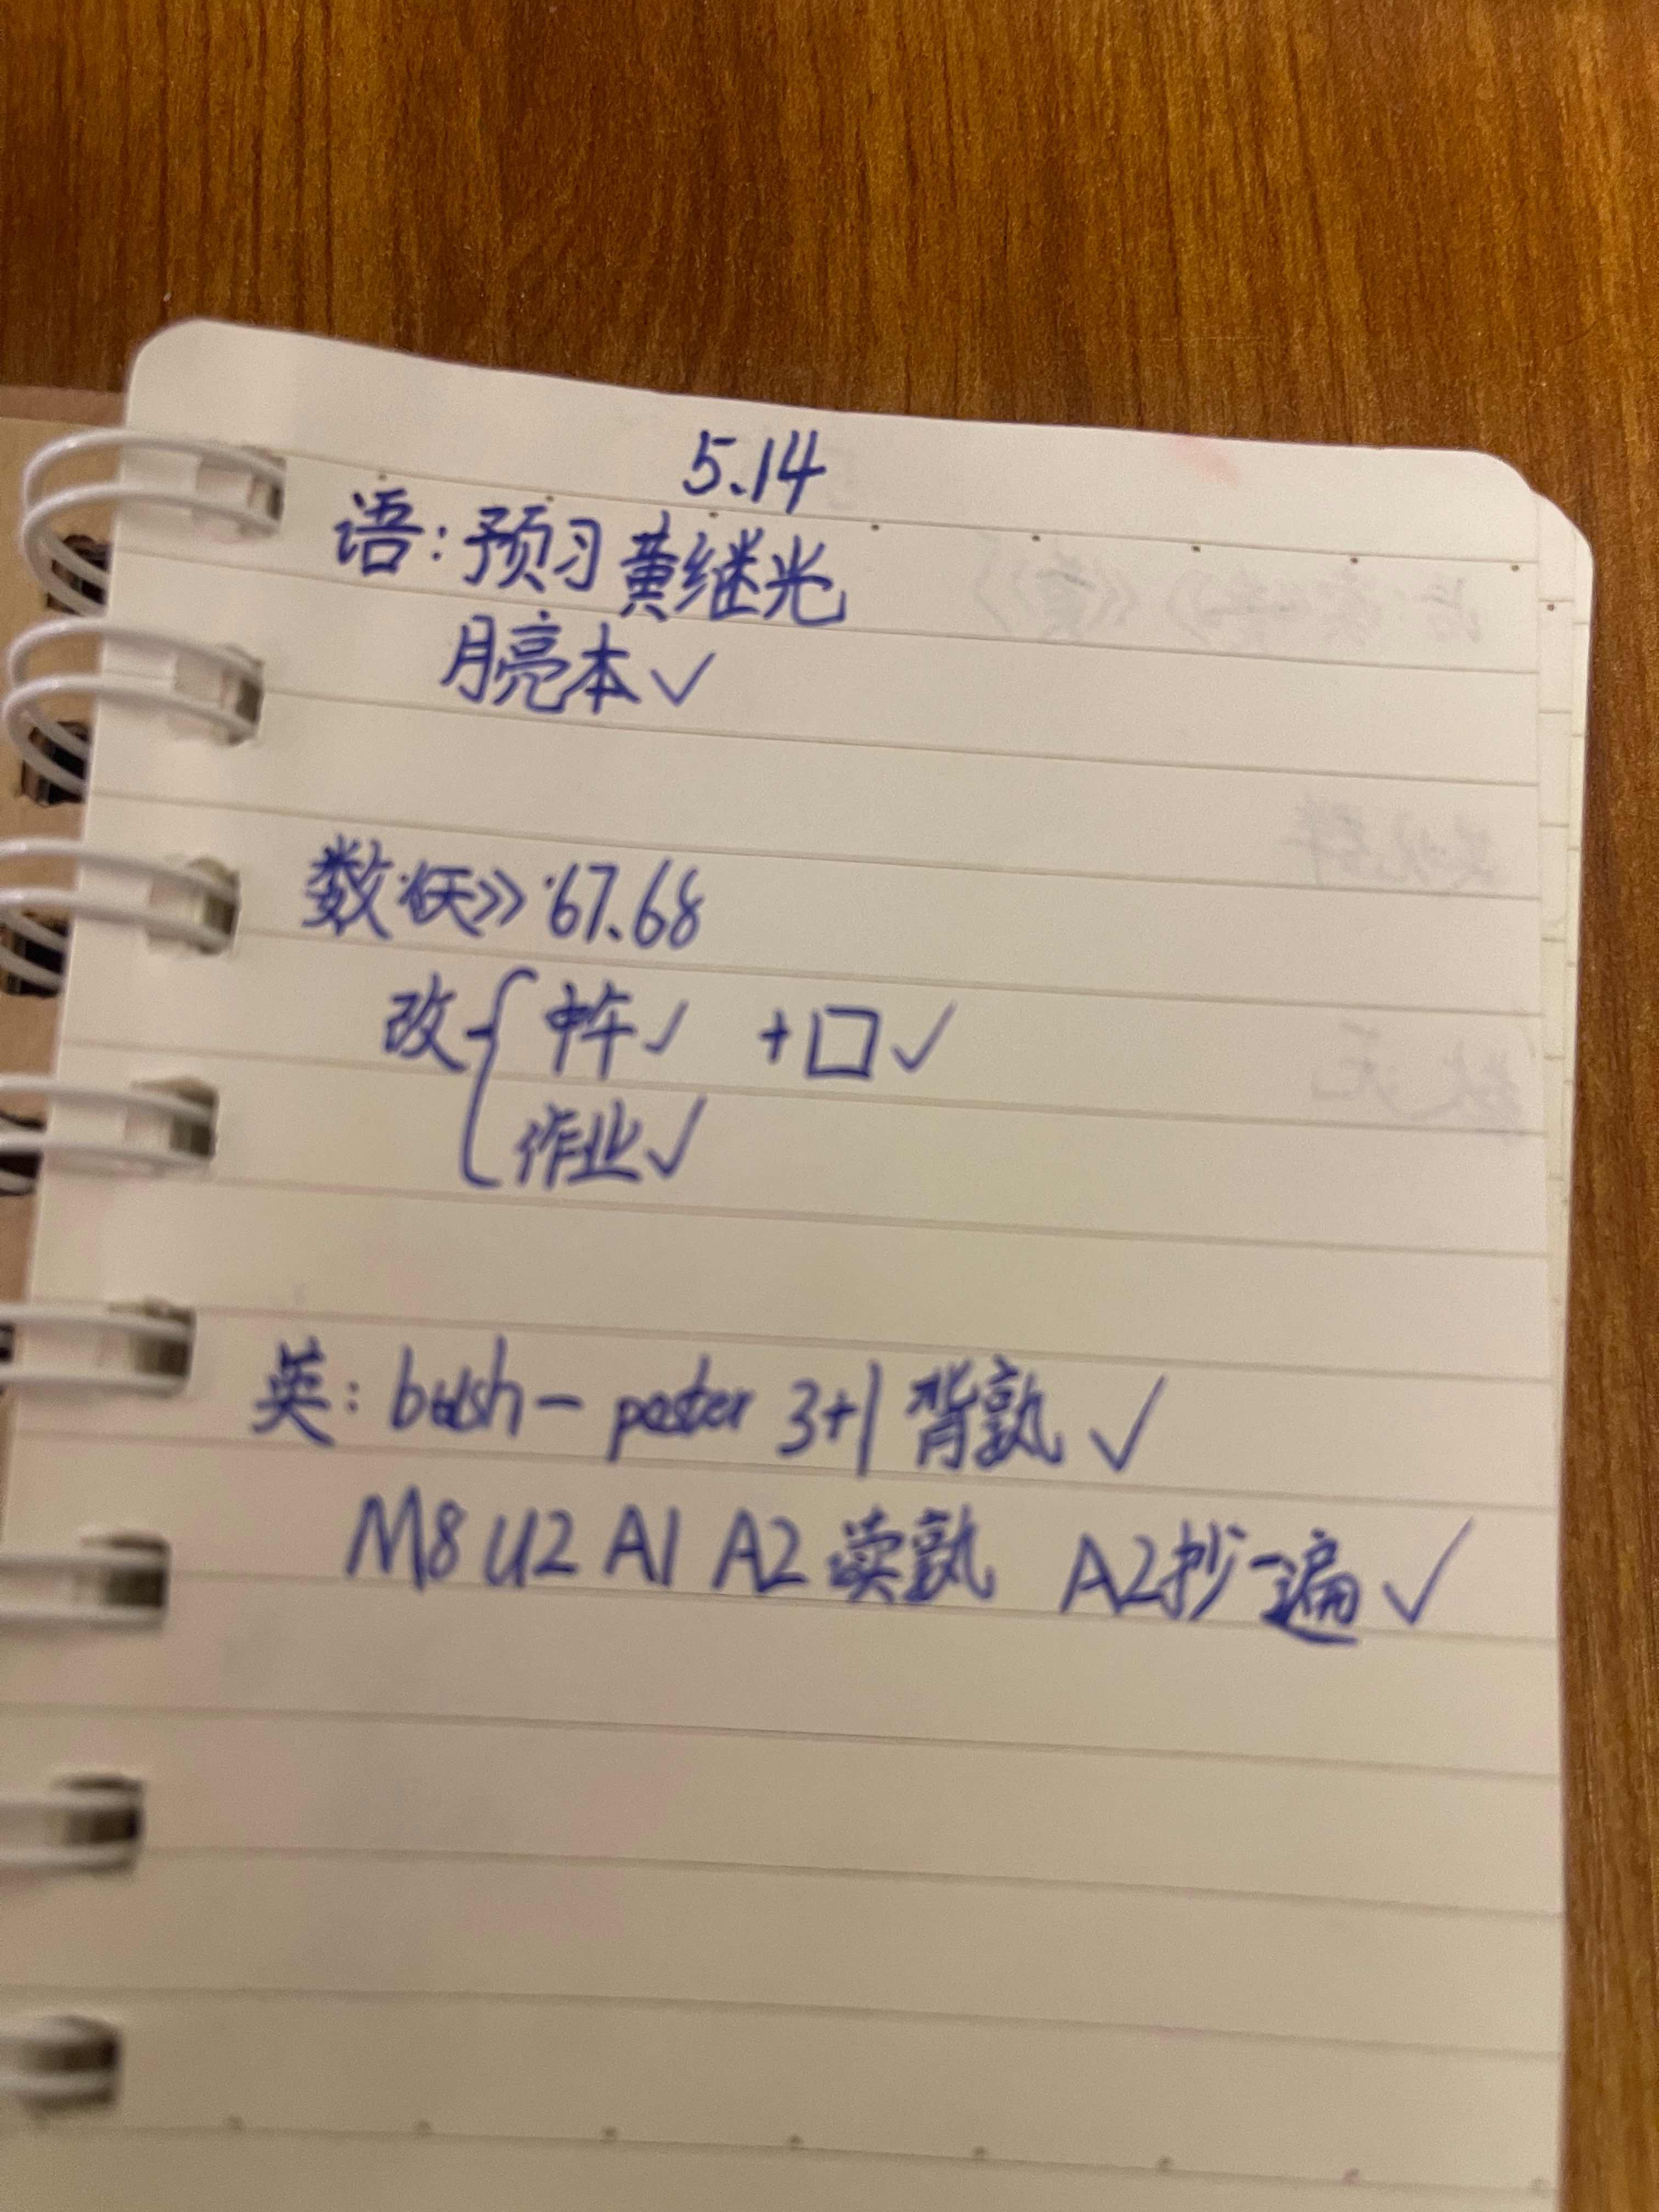 5.14
语：预习黄继光
月亮本✓
数：《天》：67.68
改 ✓ +口✓
作业✓
英： - poster 3+1 背熟 ✓
M8 U2 A1 A2 读熟 A2抄一遍 ✓